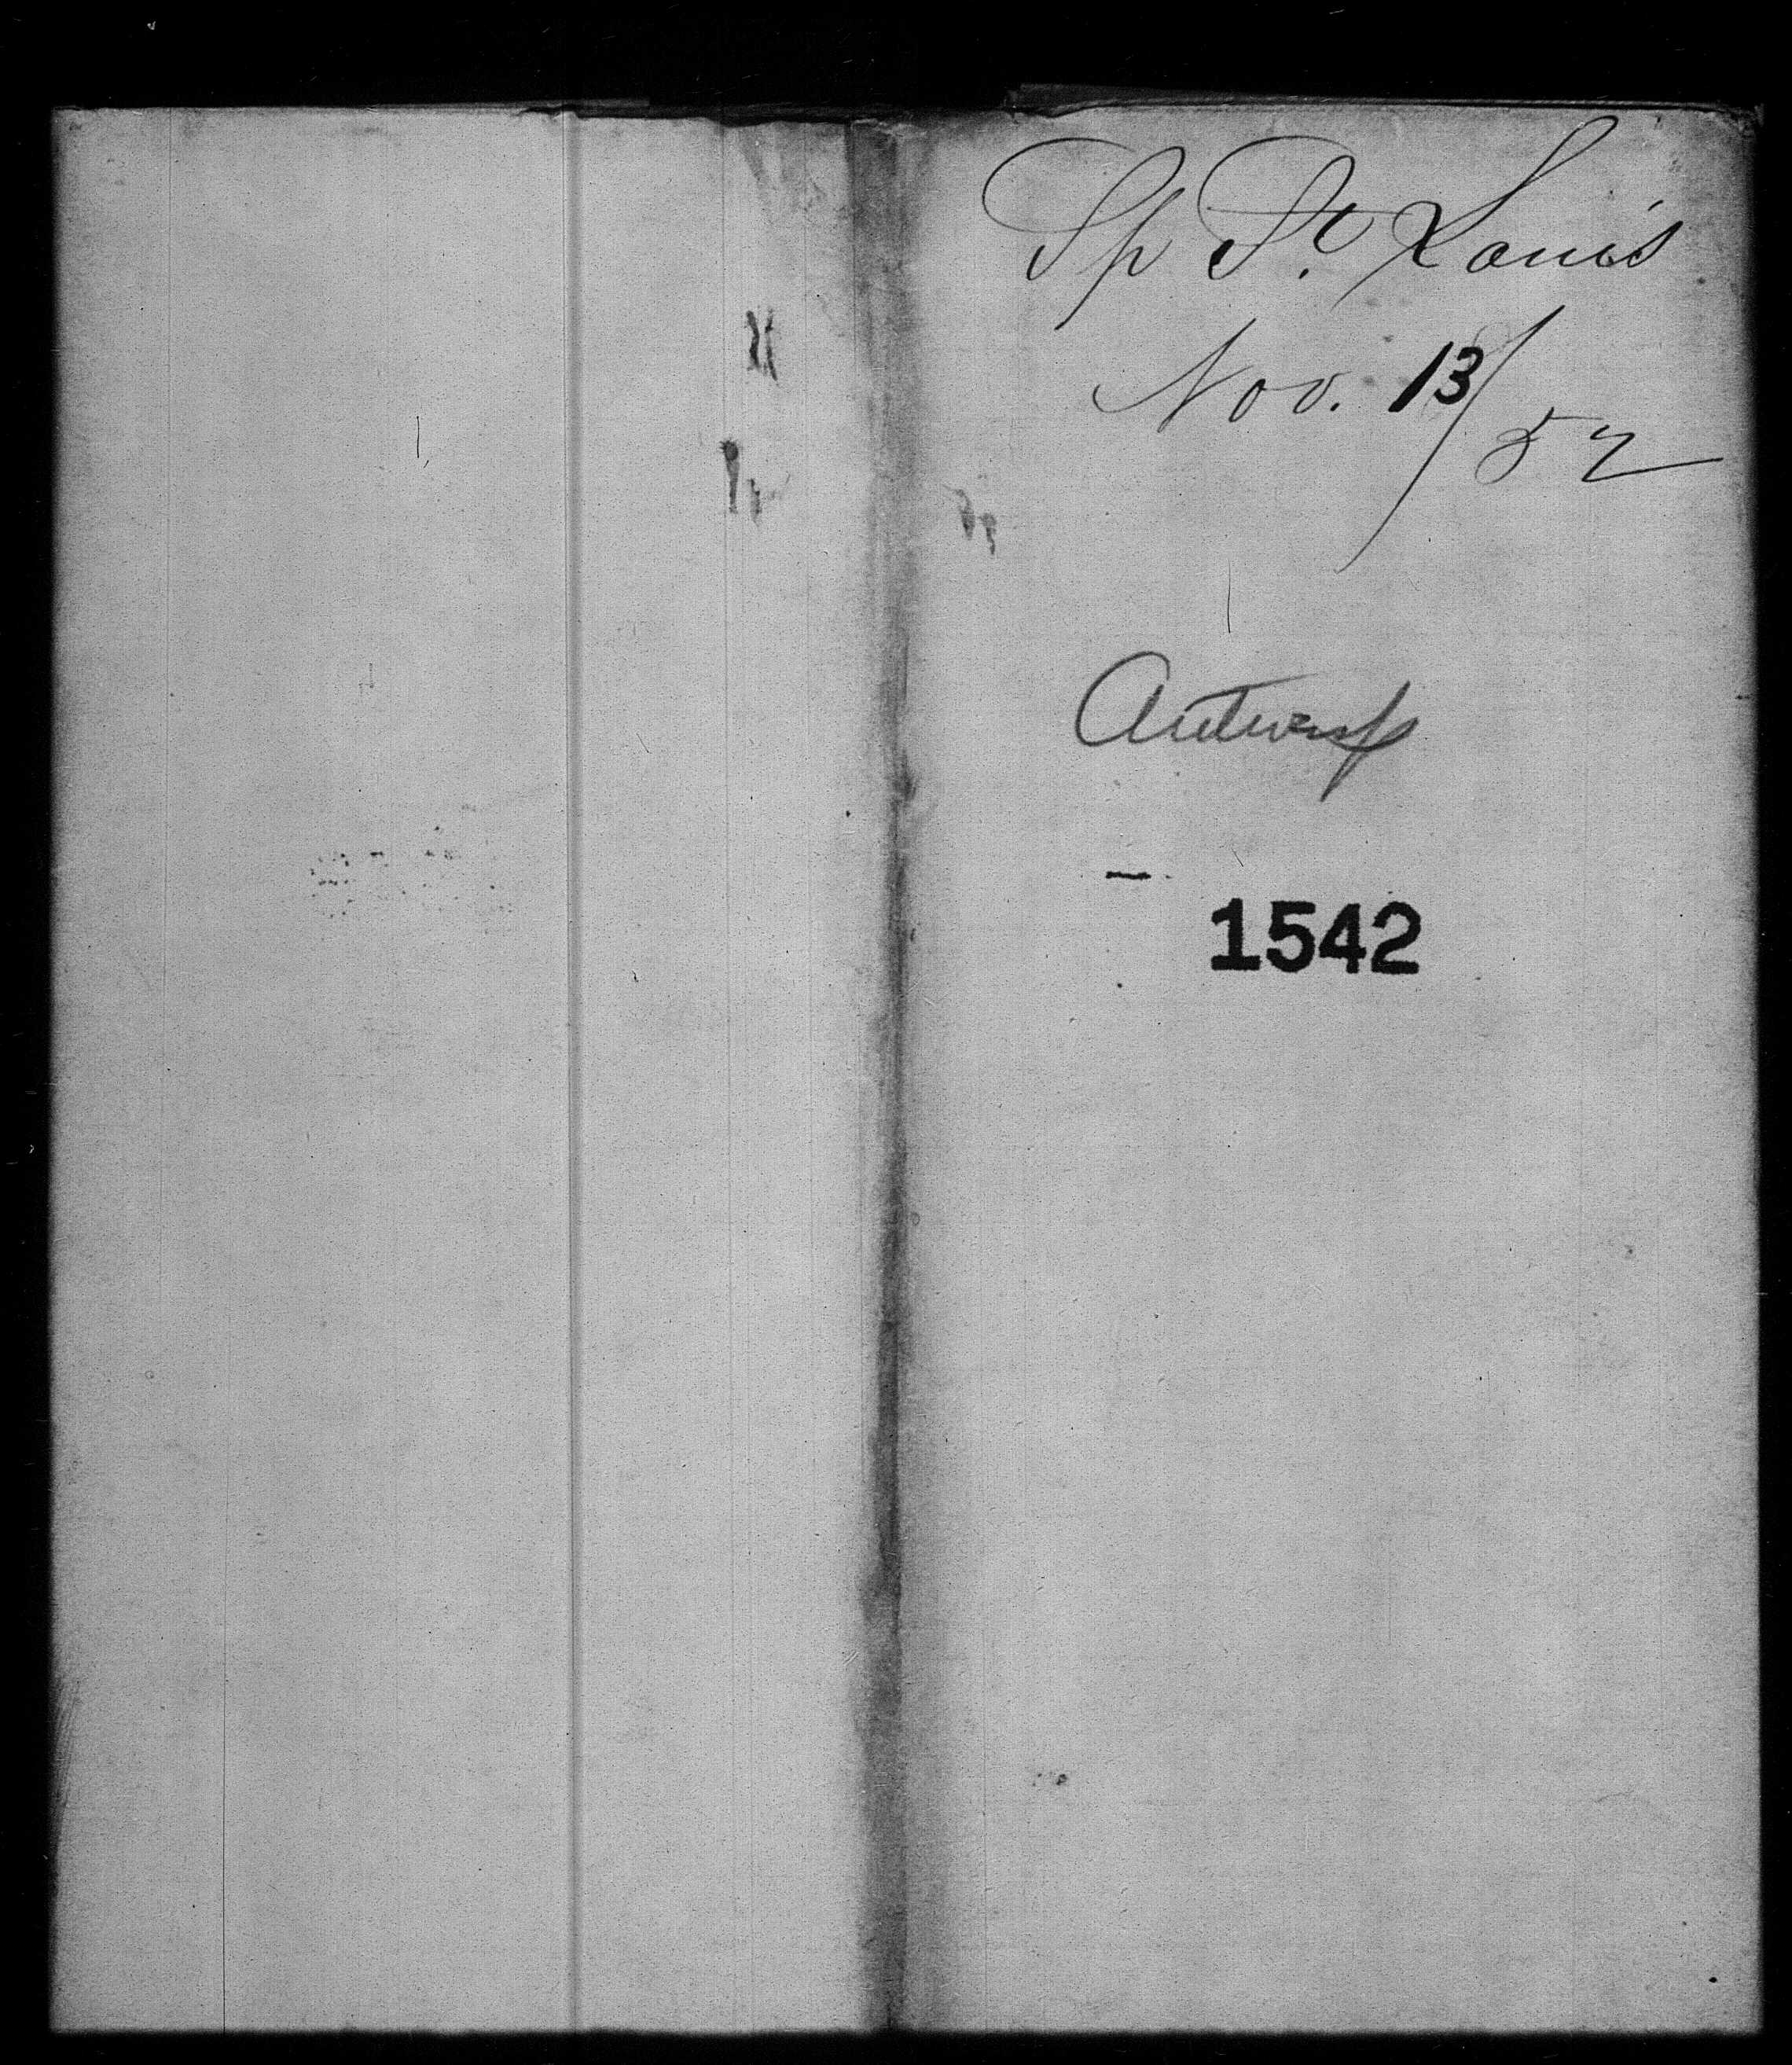 Sp St. Louis
Nov. 13/52
Antwerp
1542